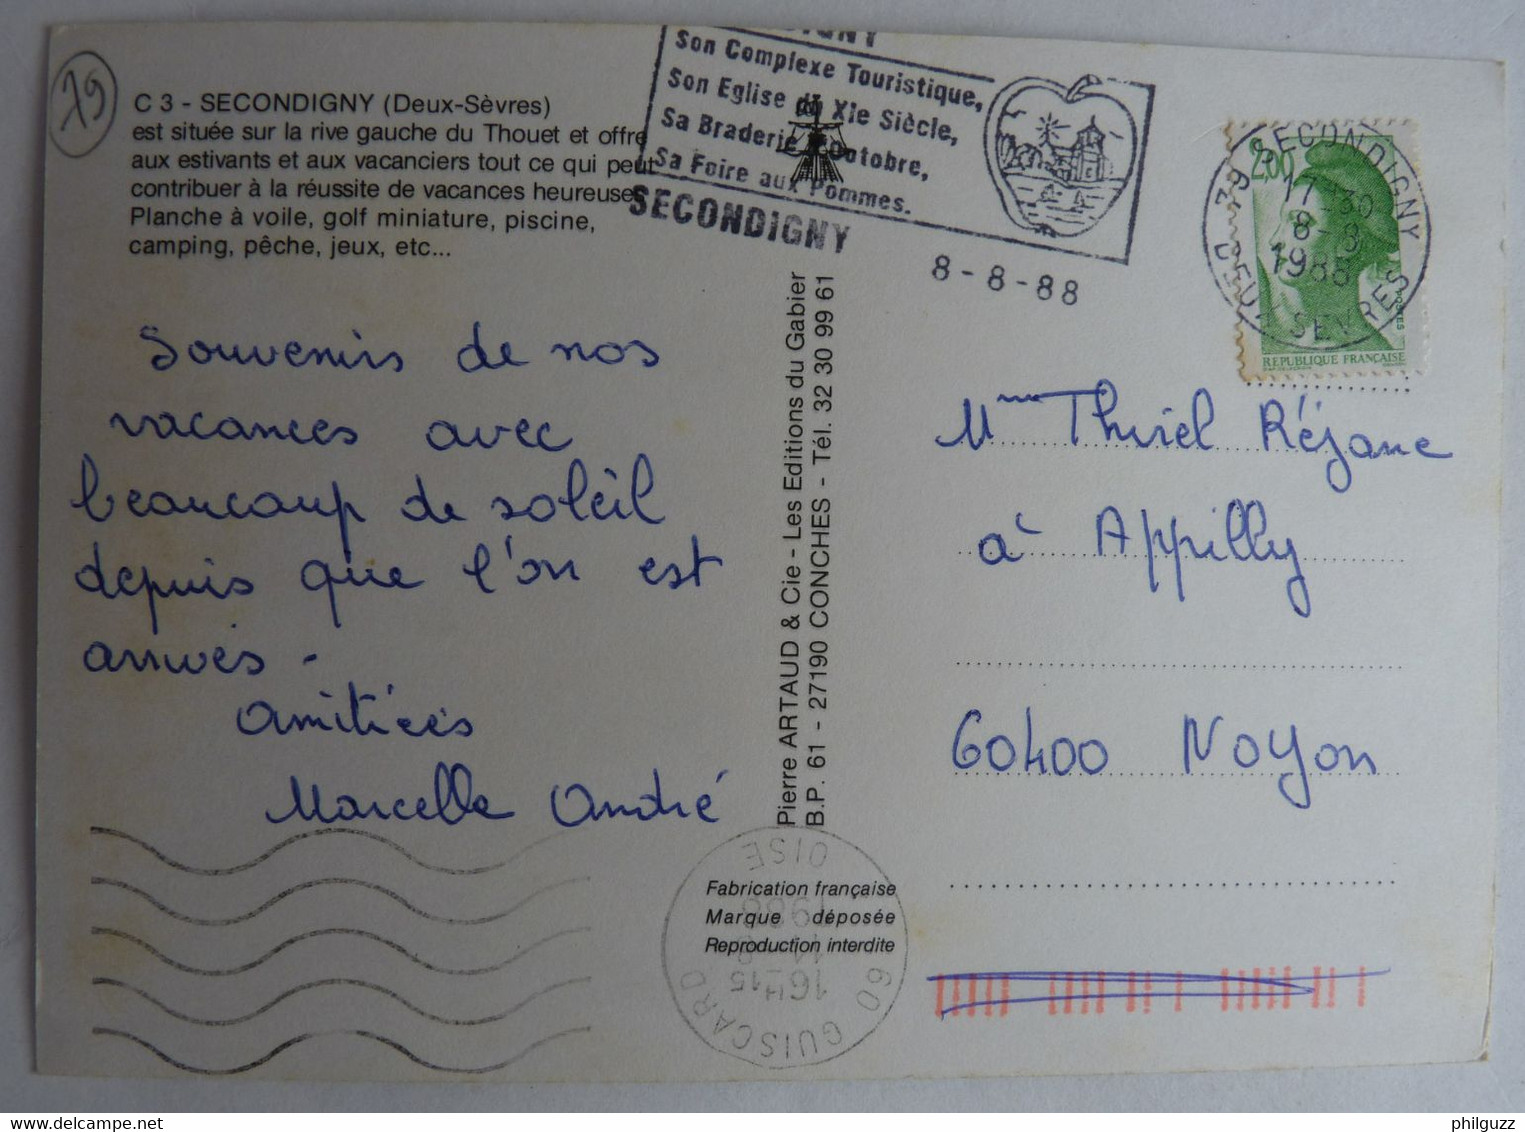 79
C 3 - SECONDIGNY (Deux-Sèvres)
est située sur la rive gauche du Thouet et offre
aux estivants et aux vacanciers tout ce qui peut
contribuer à la réussite de vacances heureuses
Planche à voile, golf miniature, piscine,
camping, pêche, jeux, etc...
Son Complexe Touristique,
Son Eglise du XIe Siècle,
Sa Braderie d'octobre,
Sa Foire aux Pommes.
SECONDIGNY
8-8-88
79 SECONDIGNY
17-30
8-8
1988
DEUX SEVRES
2,00
POSTES
REPUBLIQUE FRANÇAISE
Souvenirs de nos
vacances avec
beaucoup de soleil
depuis que l'on est
arrivés -
Amitiées
Marcelle André
Pierre ARTAUD & Cie - Les Editions du Gabier
B.P. 61 - 27190 CONCHES - Tél. 32 30 99 61
Mme Thuiel Réjane
à Appilly
60400 Noyon
Fabrication française
Marque déposée
Reproduction interdite
60 GUISCARD
16H15
1988
OISE
philguzz